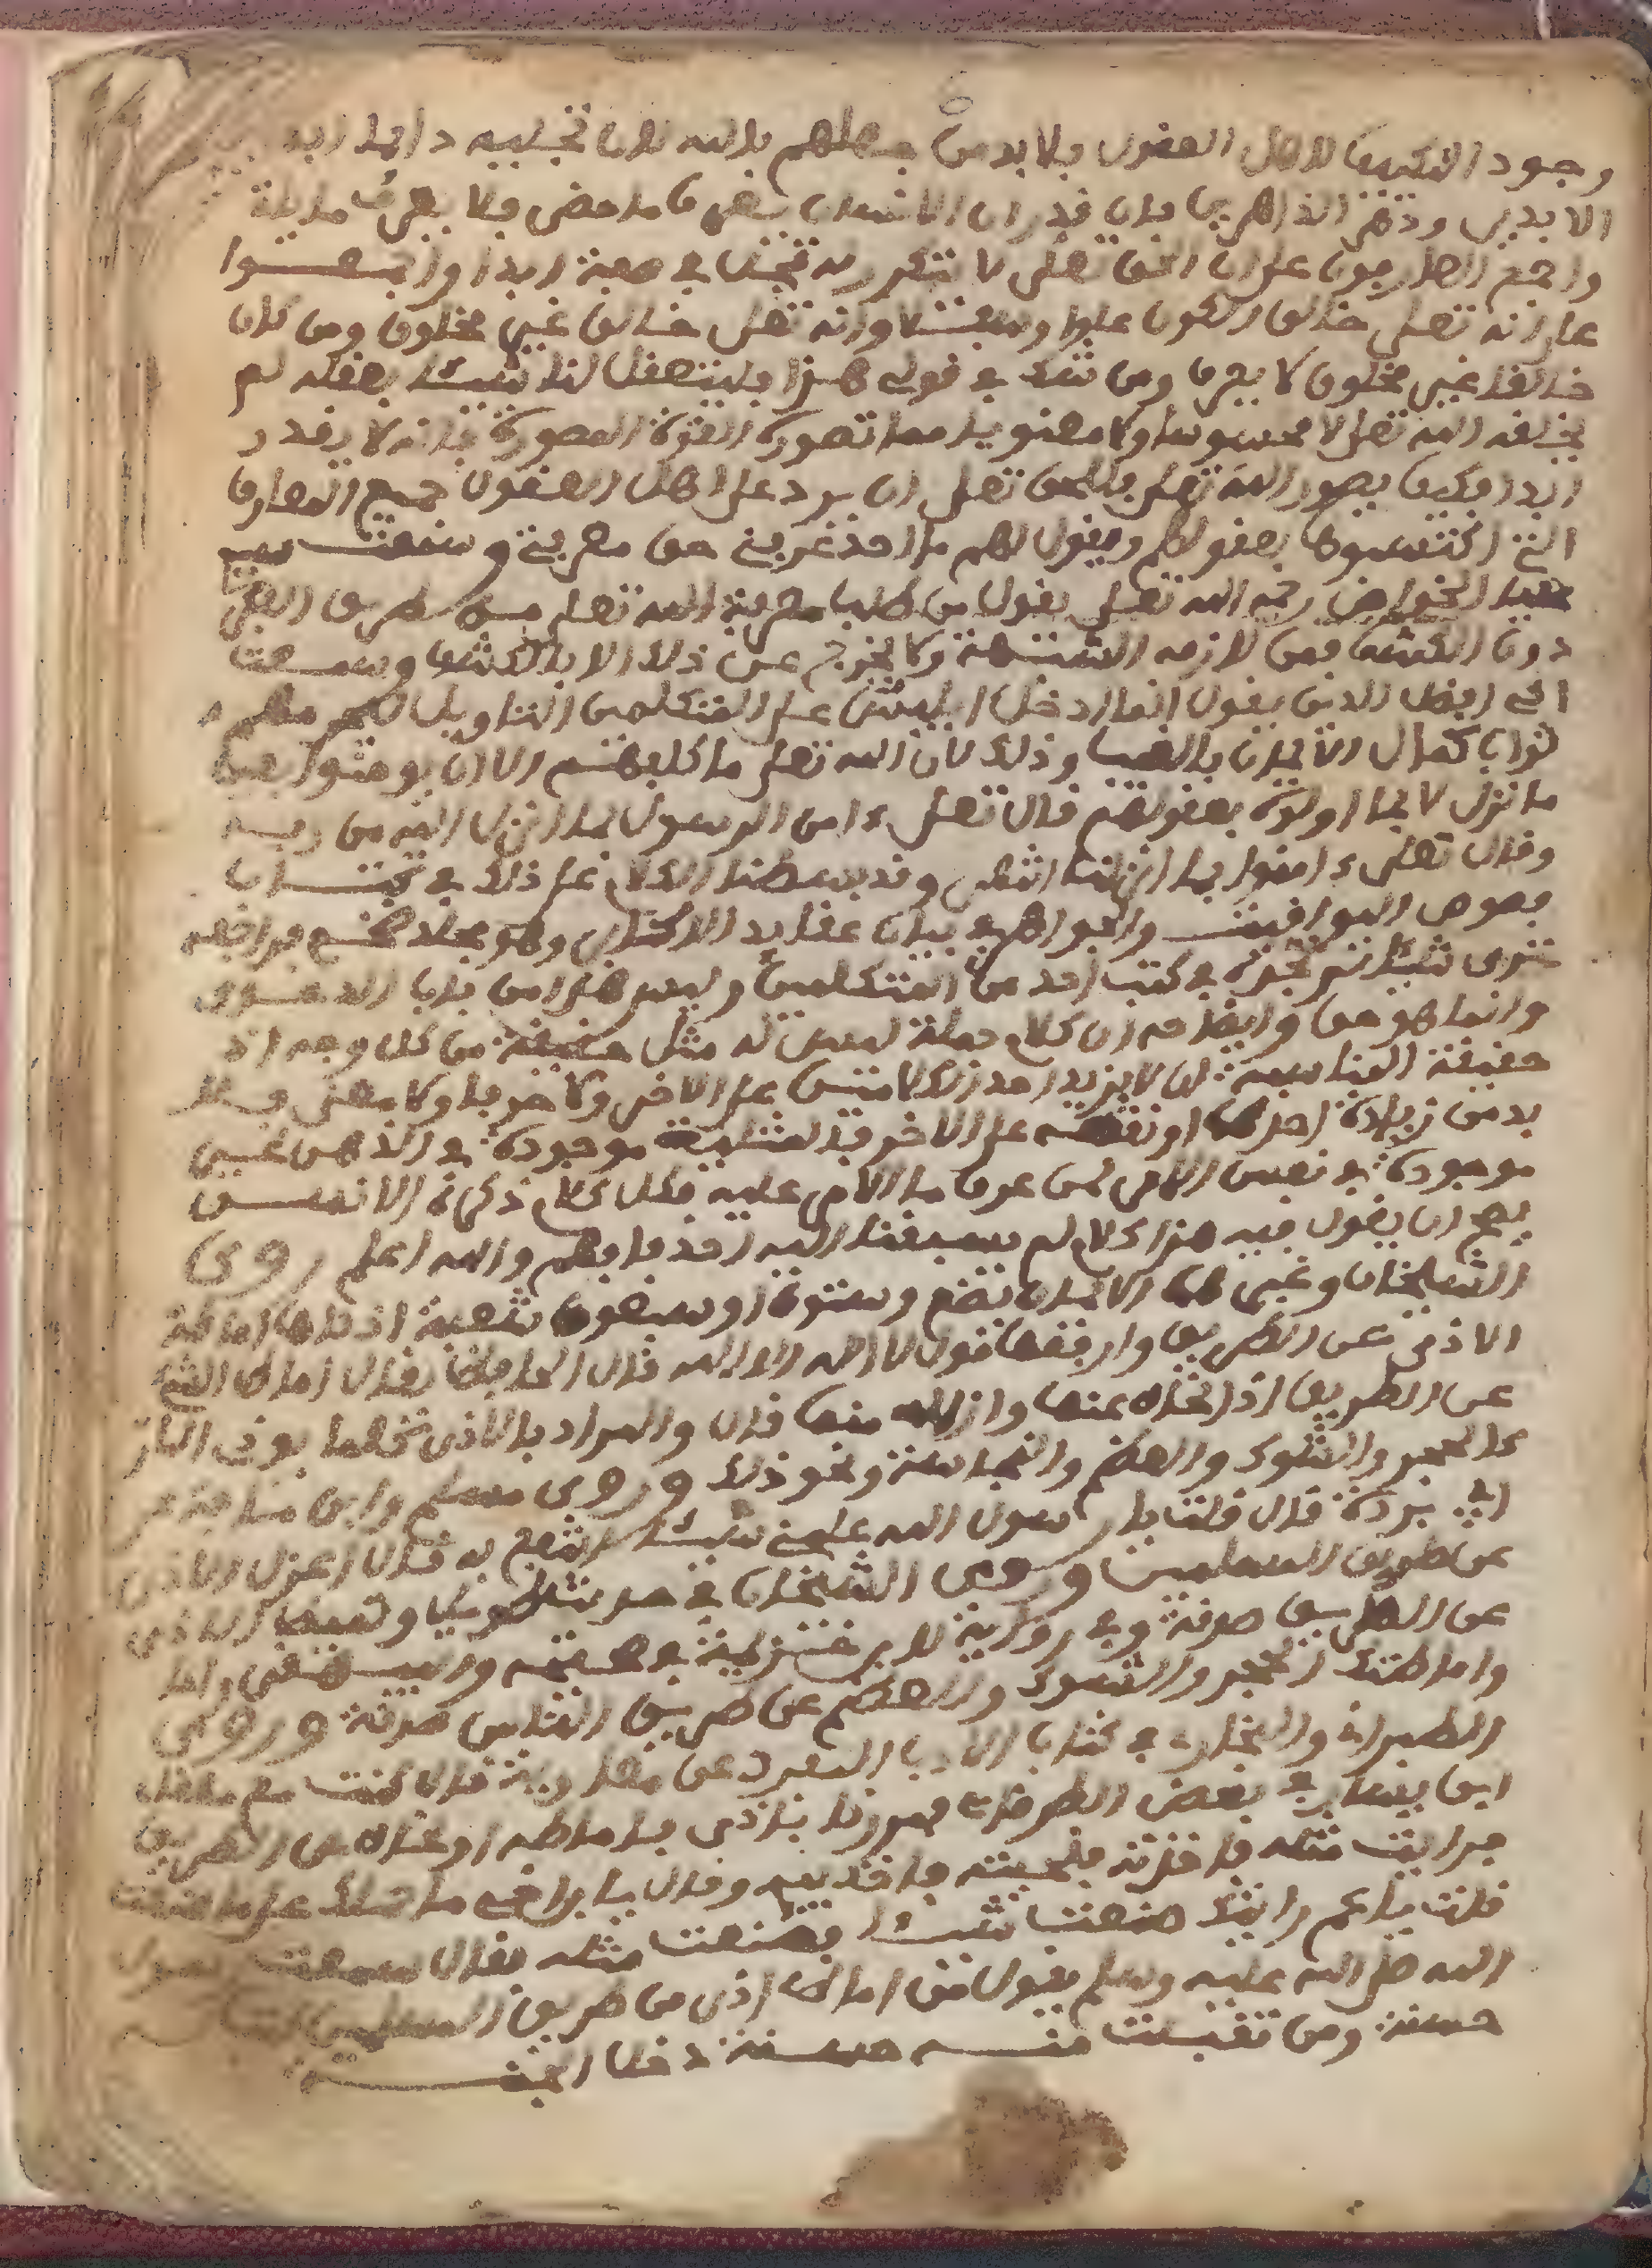 وجود التكييف لاهل العقول فلا بد من جهلهم بالله فان تجليه دايما ابد
الابدين ودهر الداهرين فان قدر ان الانسان يعرف ما مضى فلا يعرف ما ياتي
واجمع العارفون على ان الحق تعلى لا يتكرر له تجل في صفة ابدا واجمعوا
على انه تعلى خالق الكون علوا وسفلا وانه تعلى خالق غير مخلوق ومن كان
خالفا غير مخلوق لا يعرف ومن شك في قولي هذا فليتعقل لنا شيئا بعقله لم
يخلقه الله تعلى لا محسوسا ولا معنويا مما تصوره القوة المصورة فانه لا يقدر
ابدا فكيف يصور الله تعلى فللحق تعلى ان يرد على اهل العقول جميع المعارف
التي اكتسبوها بعقولهم ويقول لهم ما احد عرفني حق معرفتي وسمعت سيدي
عليا الخواص رحمه الله تعلى يقول من طلب معرفة الله تعلى من طريق العقل
دون الكشف فمن لازمه الشبهة ولا يخرج عن ذلك الا بالكشف وسمعت
اخي افضل الدين يقول انما ادخل ابليس على المتكلمين التاويل ليحرمهم
ثواب كمال الايمان بالغيب وذلك لان الله تعلى ما كلفهم الا ان يومنوا بعين
ما نزل لا بما اولوه بعقولهم قال تعلى ءامن الرسول بما انزل اليه من ربه
وقال تعلى ءامنوا بما انزلنا انتهى وقد بسطنا الكلام على ذلك في كتاب
فصوص اليواقيت والجواهر في بيان عقايد الاكابر وهو مجلد ضخم فراجعه
ترى شيئا لم تجده في كتب احد من المتكلمين وليس هذا من باب الدعوى
وانما هو حق وايضاحه ان كلام جملة ليس له مثل حقيقة من كل وجه اذ
حقيقة المناسبة ان لا يزيد احد على الاخر ولا حرفا ولا معنى فلا
بد من زيادة احدهما او نقصه على الاخر فالمثلية موجودة في الذهن غير
موجودة في نفس الامر لمن عرف ما الامر عليه فكل كلام ذكره الانسان
يصح ان يقول فيه هذا كلام لم يسبقنا اليه احد فافهم والله اعلم روى
الشيخان وغيرهما الايمان بضع وستون او سبعون شعبة ادناها اماطة
الاذى عن الطريق وارفعها قول لا اله الا الله قال الحافظ يقال اماط الشيء
عن الطريق اذا نحاه عنها وازاله منها قال والمراد بالاذى كلما يوذي المار
كالحجر والشوك والعظم والنجاسة ونحو ذلك وروى مسلم وابن ماجة عن
ابي برزة قال قلت يا رسول الله علمني شيئا انتفع به قال اعزل الاذى
عن طريق المسلمين وروى الشيخان في حديث طويل وتميط الاذى
عن الطريق صدقة وفي رواية لابن خزيمة في صحيحه والبيهقي
واماطتك الحجر والشوك والعظم عن طريق الناس صدقة وروى
الطبراني والبخاري في كتاب الادب المفرد عن معاوية قال كنت مع معقل
ابن يسار في بعض الطرقات فمررنا باذى فاماطه او نحاه عن الطريق
فرايت مثله فاخذته فنحيته فاخذ بيدي وقال يا ابن اخي ما حملك على ما صنعت
قلت يا عم رايتك صنعت شيئا فصنعت مثله فقال سمعت رسول
الله صلى الله عليه وسلم يقول من اماط اذى من طريق المسلمين كتبت له
حسنة ومن تقبلت منه حسنة دخل الجنة